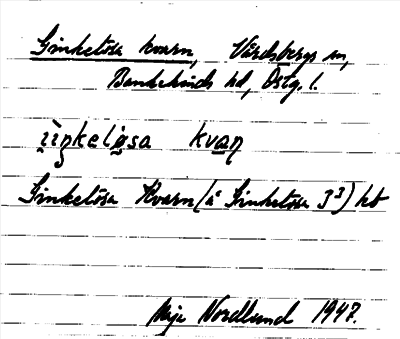 Ginkelösa kvarn, Vårdsbergs sn,
Bankekinds hd, Östg. l.
kvan
Ginkelösa Kvarn (å Ginkelösa 3³) hb
Maja Nordlund 1947.